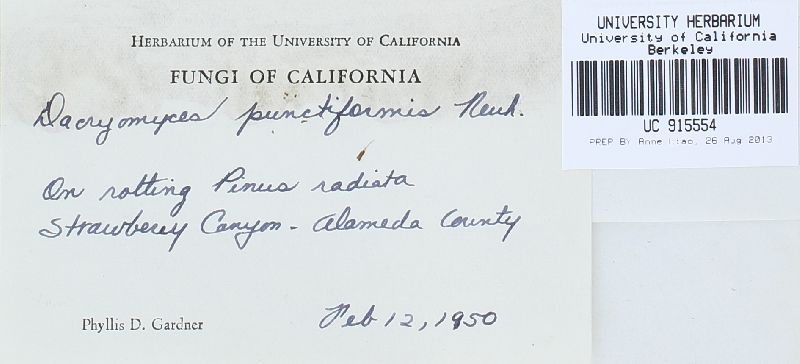 HERBARIUM OF THE UNIVERSITY OF CALIFORNIA
FUNGI OF CALIFORNIA
Dacryomyces punctiformis Neuh.
On rotting Pinus radiata
Strawberry Canyon - Alameda County
Phyllis D. Gardner
Feb 12, 1950
UNIVERSITY HERBARIUM
University of California
Berkeley
UC 915554
PREP BY Anne , 26 Aug 2013